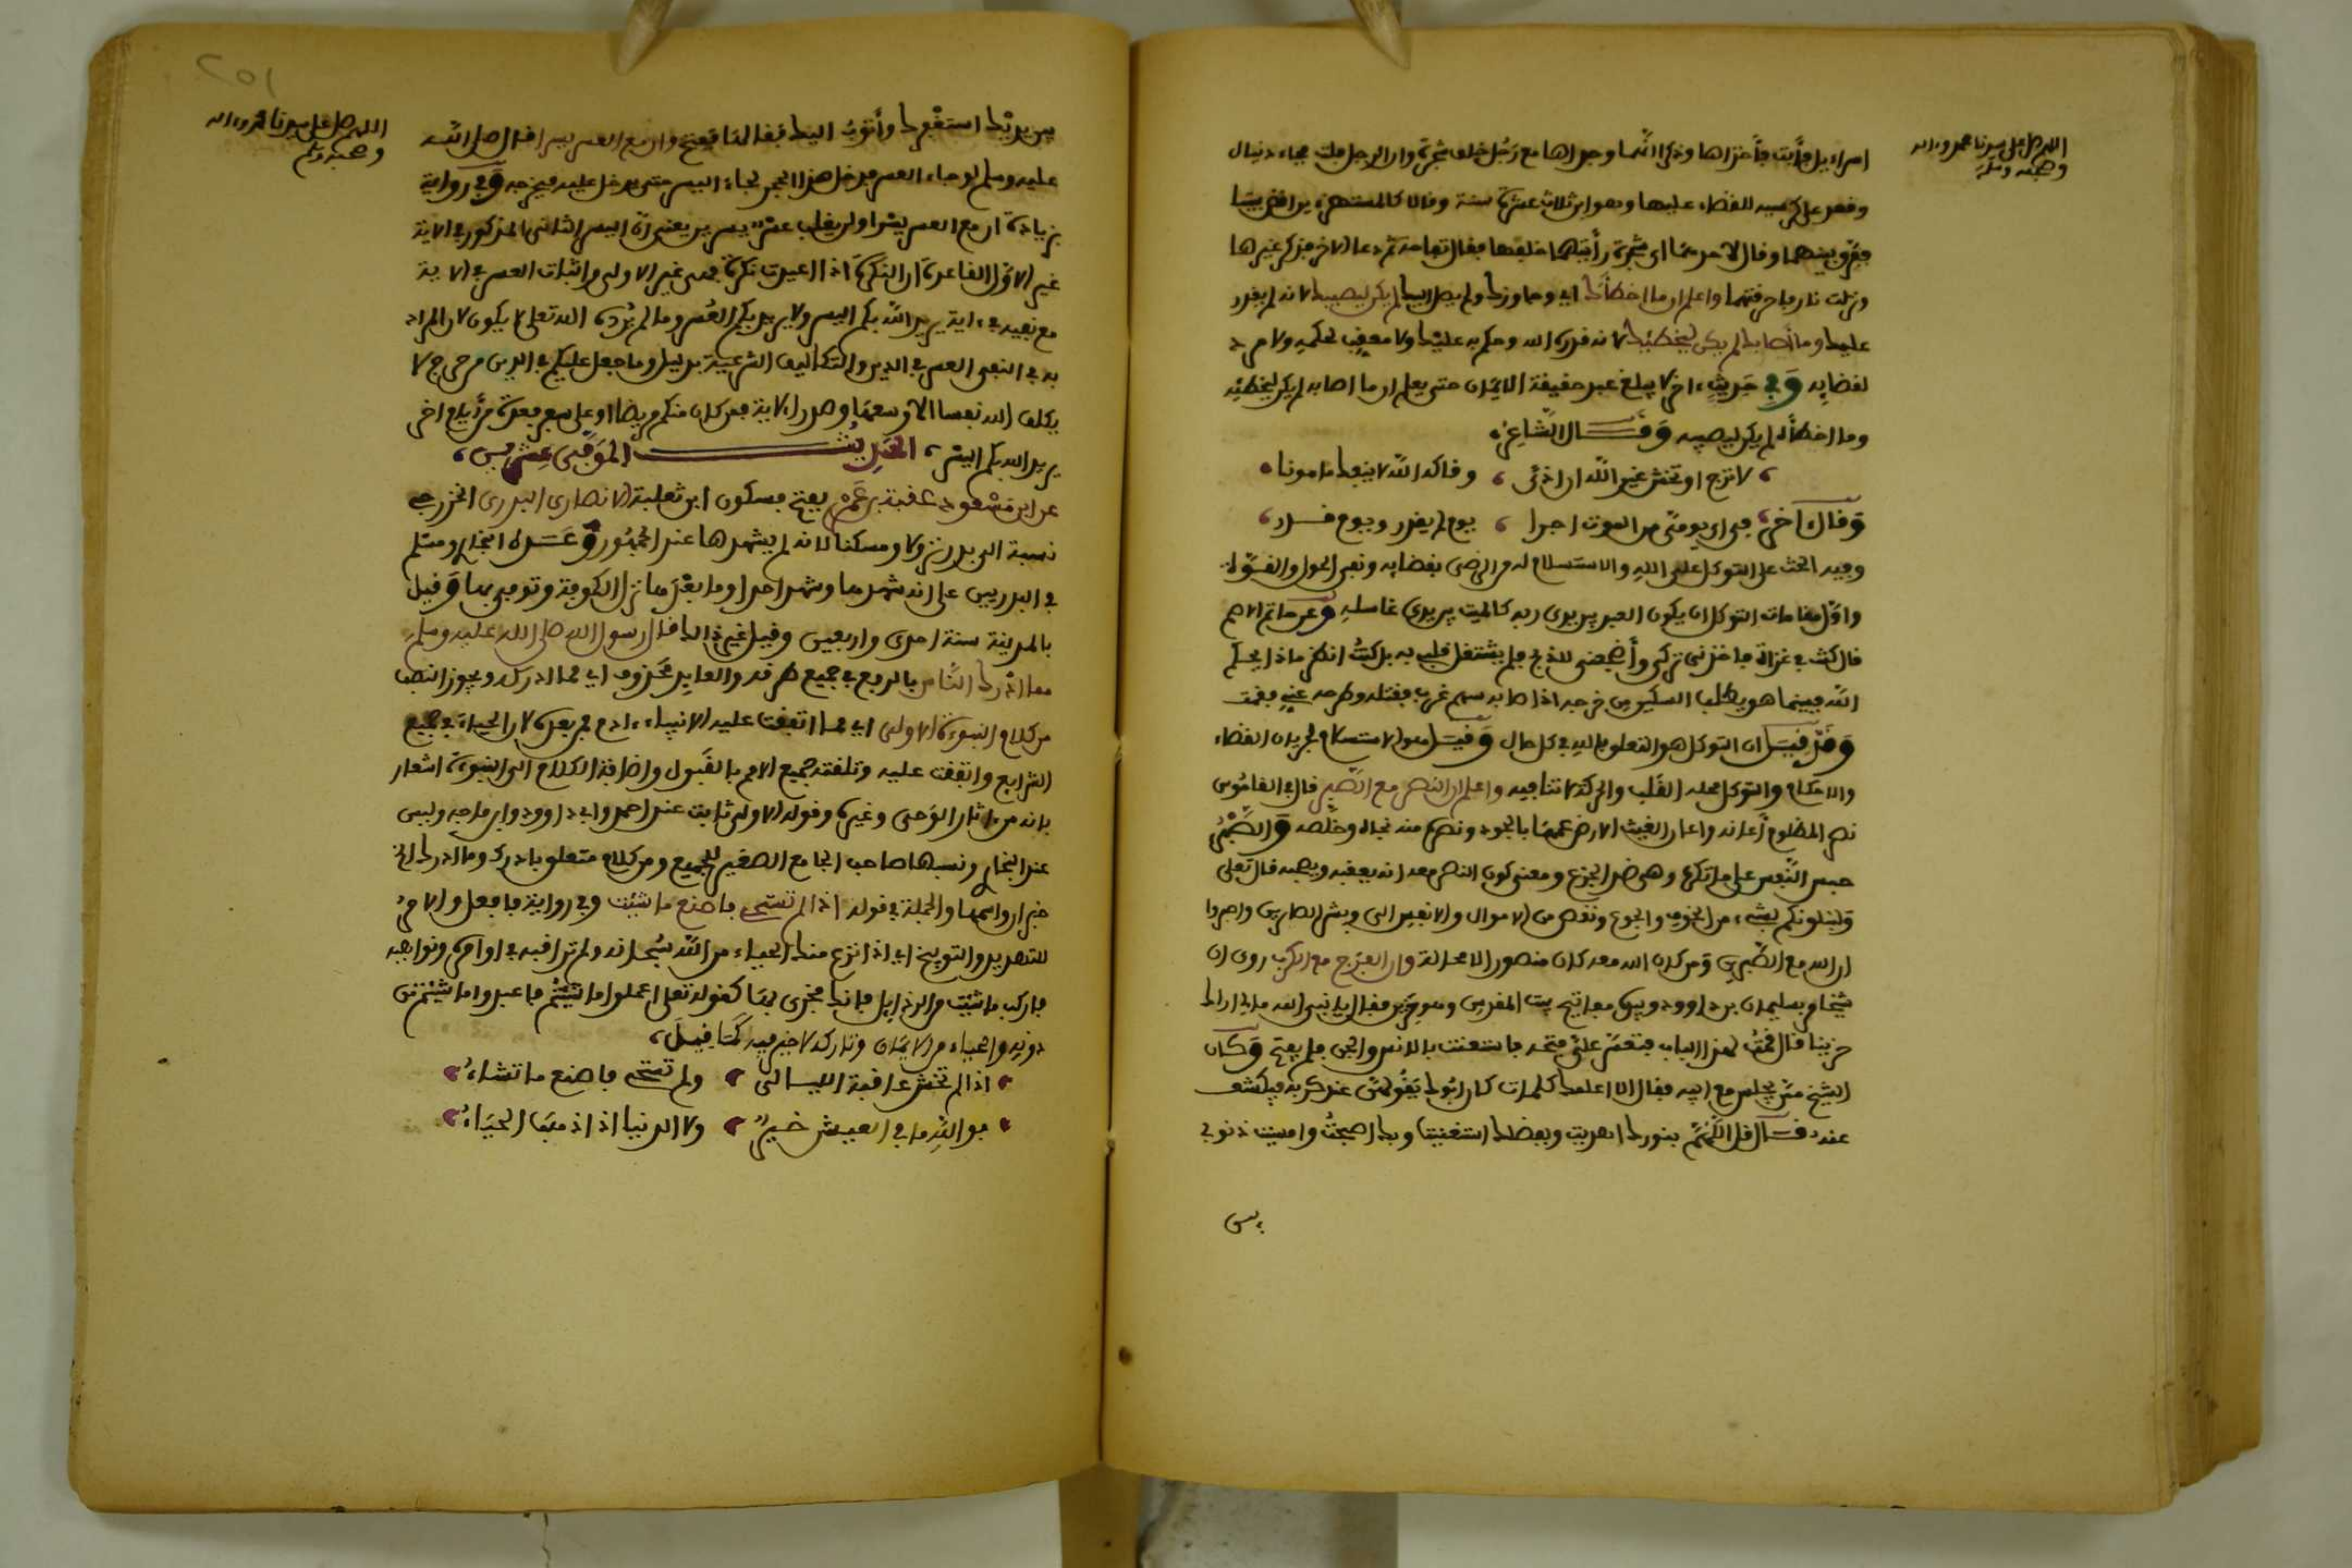 اللهم صل على سيدنا محمد وءاله
وصحبه وسلم
امراءيل فأبت فأخذاها وذكرا أنهما وجداها مع رجل خلف شجرة وان الرجل فجاء دنيال
وقعد على كرسيه للقضاء عليها وهو ابن ثلاث عشرة سنة وقالا كالمستهزء يزاقض بيننا
ففرق بينهما وقال لاحدهما اى شجرة رأيتهما خلفها فقال تفاحة ثم دعا الاخر فذكر غيرها
ونزلت نار فاحرقتهما واعلم ان ما اخطأك اي وجاوزك ولم يصل اليك لم يكن ليصيبك لانه لم يقدر
عليك وما أصابك لم يكن ليخطئك لانه قدره الله وحكم به عليك ولا معقب لحكمه ولا مرد
لقضايه وفي حديث ءاخر لا يبلغ عبد حقيقة الايمان حتى يعلم ان ما اصابه لم يكن ليخطئه
وما اخطأه لم يكن ليصيبه وقال الشاعر
لا ترج او تخش غير الله ان اذى وقاكه الله لا ينفك مامونا
وقال ءاخر في اى يومي من الموت اجرا يوم لم يقدر ويوم قدر
وفيه الحث على التوكل على الله والاستسلام له والرضى بقضايه ونفي الحول والقوة
واول مقامات التوكل ان يكون العبد بين يدي ربه كالميت بين يدي غاسله وعن حاتم الاصم
قال كنت في غزاة فاخذني تركي وأضجعني للذبح فلم يشتغل قلبي به بل كنت انظر ماذا يحكم
الله فبينما هو يطلب السكين من خرجه اذ اصابه سهم غرب فقتله وطرحه عني فقمت
وقد قيل ان التوكل هو التعلق بالله في كل حال وقيل هو الاستسلام لجريان القضاء
والاحكام والتوكل محله القلب والحركة لا تنافيه واعلم ان النصر مع الصبر قال في القاموس
نصر المظلوم أعانه واعار الغيث الارض عمها بالجود ونصره منه نجاه وخلصه والصبر
حبس النفس على ما تكره وهو ضد الجزع ومعنى كون النصر معه انه يعقبه ويصحبه قال تعلى
ولنبلونكم بشيء من الخوف والجوع ونقص من الاموال والانفس الى وبشر الصابرين واصبروا
ان الله مع الصبرين ومن كان الله معه كان منصورا لا محالة وان الفرج مع الكرب روى ان
شيخا مر بسليمان بن داوود وبيده مفاتيح بيت المقدس وهو حزين فقال يا نبي الله ما لى اراك
حزينا قال قمت لهذا الباب فتعسر علي فتحه فاستعنت بالانس والجن فلم يفتح وكان
الشيخ ممن يجلس مع ابيه فقال الا اعلمك كلمات كان ابوك يقولهن عند كربه فيكشف
عنه قال قل اللهم بنورك اهتديت وبفضلك استغنيت وبك اصبحت وامسيت ذنوبي
بين
اللهم صل على سيدنا محمد وءاله
وصحبه وسلم
بين يديك استغفرك وأتوب اليك فقالها ففتح وان مع العسر يسرا قال صلى الله
عليه وسلم لو جاء العسر فدخل هذا الجحر لجاء اليسر حتى يدخل عليه فيخرجه وفي رواية
بزيادة ان مع العسر يسرا ولن يغلب عسر يسرين يعني أن اليسر الثاني المذكور في الاية
غير الاول لقاعدة ان النكرة اذا اعيدت نكرة فهي غير الاولى واثبات العسر في الاية
مع نفيه في ءاية يريد الله بكم اليسر ولا يريد بكم العسر وما لم يرده الله تعلى لا يكون لان المراد
به في النفى العسر في الدين والتكاليف الشرعية بدليل وما جعل عليكم في الدين من حرج لا
يكلف الله نفسا الا وسعها وصدر الاية فمن كان منكم مريضا او على سفر فعدة من أيام اخر
يريد الله بكم اليسر الحديث الموفى عشرين
عن ابن مسعود عقبة بن عمرو بفتح فسكون ابن ثعلبة الانصارى البدرى الخزرجى
نسبة الى بدر نزولا ومسكنا لانه لم يشهدها عند الجمهور وعده البخارى ومسلم
في البدريين على انه شهدها وشهد احدا وما بعدها نزل الكوفة وتوفي بها وقيل
بالمدينة سنة احدى واربعين وقيل غير ذالك قال رسول الله صلى الله عليه وسلم
مما ادرك الناس بالرفع في جميع طرقه والعايد محذوف اي مما ادركه ويجوز النصب
من كلام النبوة الاولى اي مما اتفقت عليه الانبياء ءادم فمن بعده لان الحياء في جميع
الشرايع واتفقت عليه وتلقته جميع الامم بالقبول واضافة الكلام الى النبوة اشعار
بانه من ءاثار الوحى وغيره وقوله الاولى ثابت عند احمد وابي داوود وابن ماجه وليس
عند البخارى ونسبها صاحب الجامع الصغير للجميع ومن كلام متعلق بادرك وما ادرك الخ
خبر ان واسمها والجملة في قوله اذا لم تستحي فاصنع ما شئت وفي رواية فافعل والامر
للتهديد والتوبيخ اي اذا نزع منك الحياء من الله سبحانه ولم تراقبه في اوامره ونواهيه
فاركب ما شئت من الرذايل فانك مجزى بها كقوله تعلى اعملوا ما شئتم فاعبدوا ما شئتم من
دونه والحياء من الايمان وتاركه لا خير فيه كما قيل
اذا لم تخش عاقبة الليالى ولم تستحي فاصنع ما تشاء
فوالله ما في العيش خير ولا الدنيا اذا ذهب الحياء